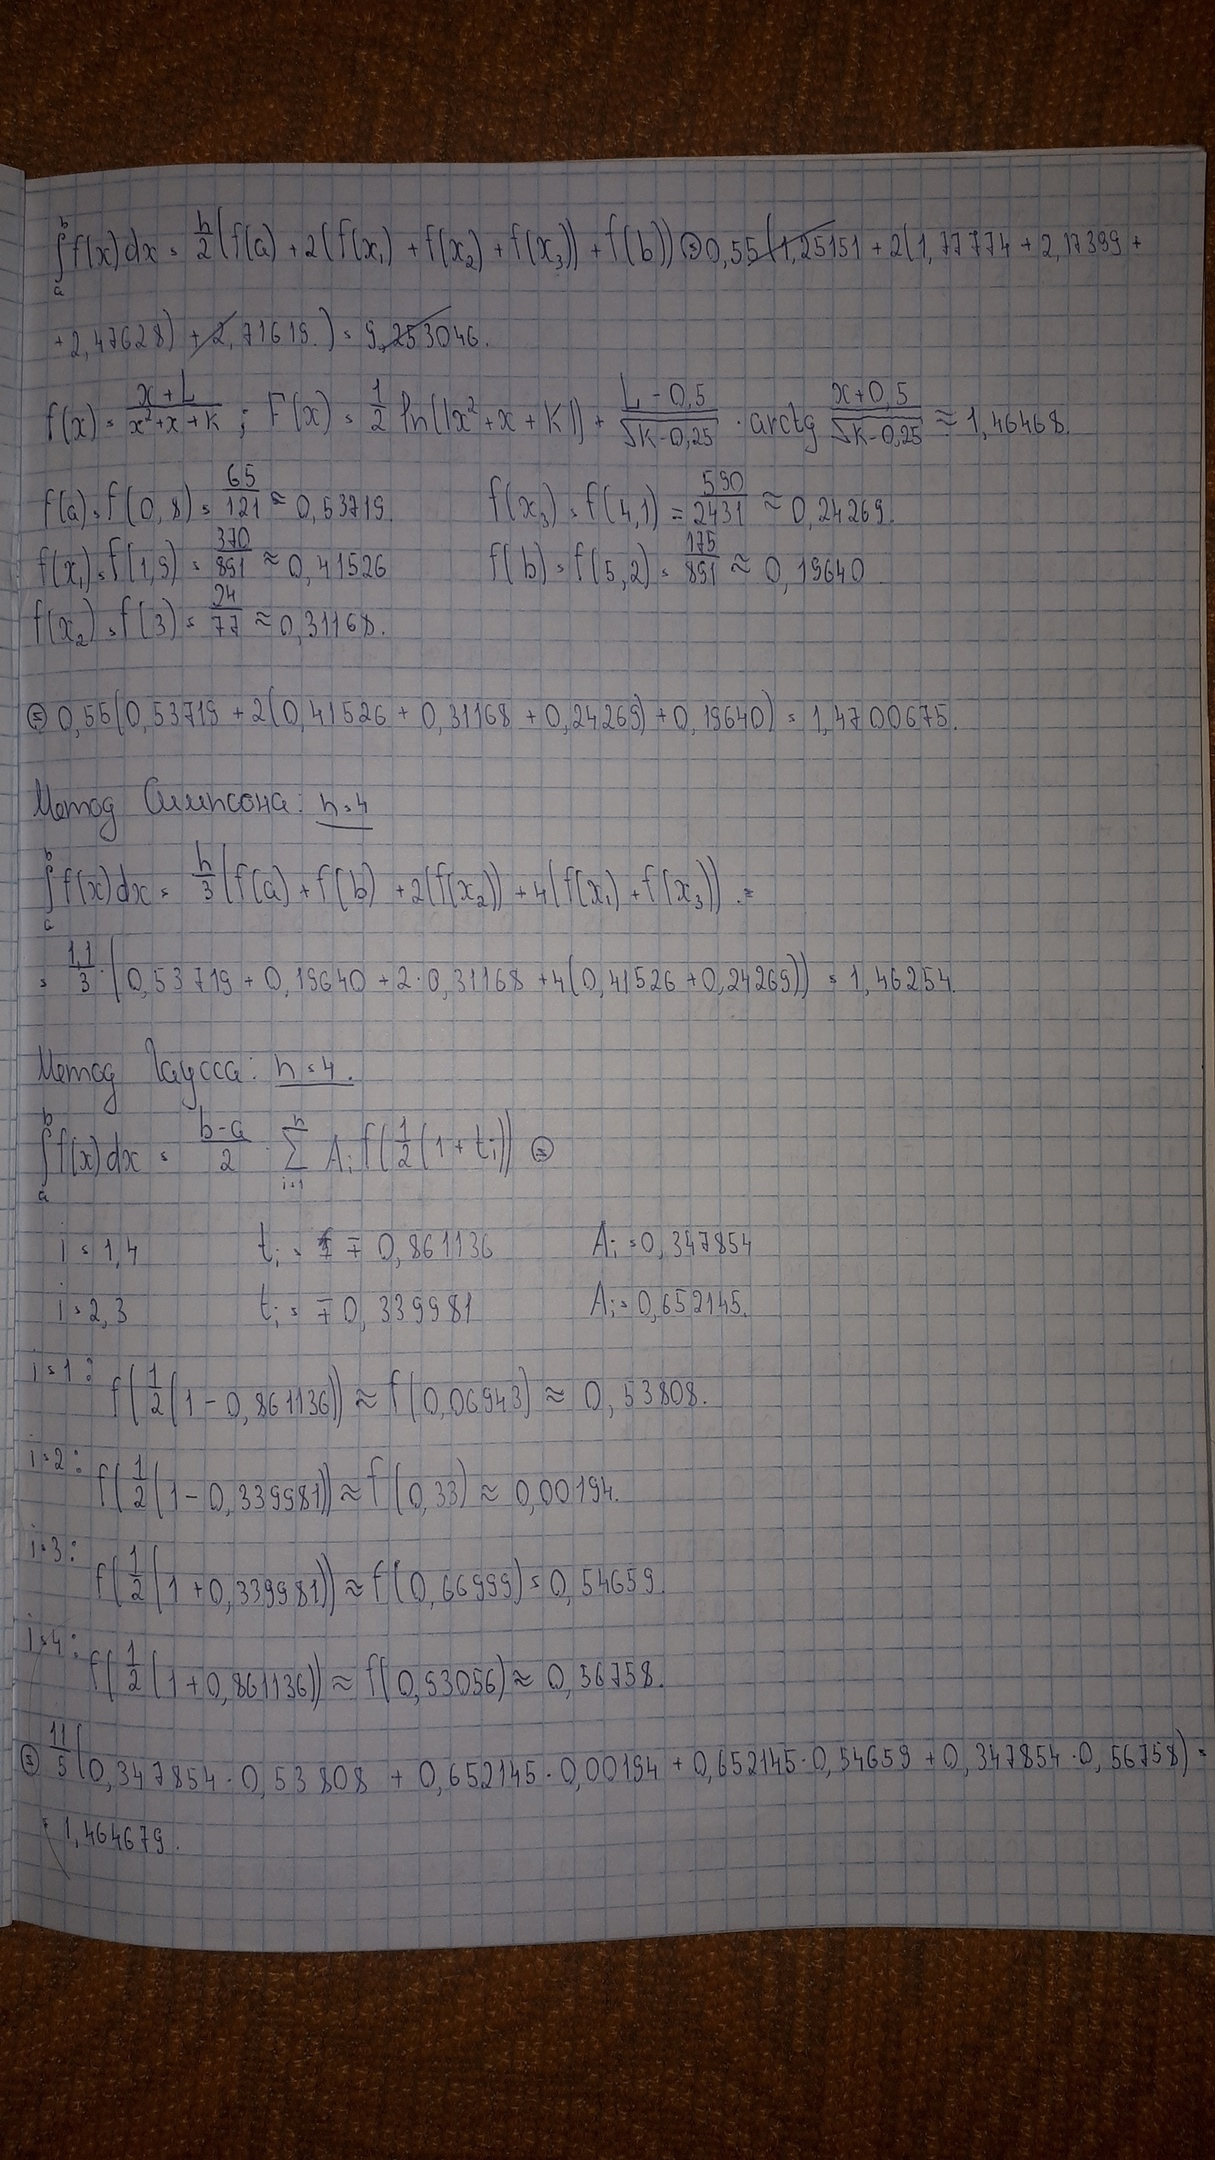 ∫ₐᵇ f(x)dx = h/2 (f(a) + 2(f(x₁) + f(x₂) + f(x₃)) + f(b)) ⊜ 0,55(1,25151 + 2(1,77774 + 2,17399 +
+ 2,47628) + 2,71619.) = 9,253046.
f(x) = (x+L)/(x²+x+K) ; F(x) = 1/2 ln(|x²+x+K|) + (L-0,5)/√(K-0,25) · arctg (x+0,5)/√(K-0,25) ≈ 1,46468.
f(a) = f(0,8) = 65/121 ≈ 0,53719. f(x₃) = f(4,1) = 590/2431 ≈ 0,24269.
f(x₁) = f(1,9) = 370/891 ≈ 0,41526 f(b) = f(5,2) = 175/891 ≈ 0,19640
f(x₂) = f(3) = 24/77 ≈ 0,31168.
⊜ 0,55(0,53719 + 2(0,41526 + 0,31168 + 0,24269) + 0,19640) = 1,4700675.
Метод Симпсона: n=4
∫ₐᵇ f(x)dx = h/3 (f(a) + f(b) + 2(f(x₂)) + 4(f(x₁) + f(x₃)) =
= 1,1/3 · (0,53719 + 0,19640 + 2·0,31168 + 4(0,41526 + 0,24269)) = 1,46254.
Метод Гаусса: n=4.
∫ₐᵇ f(x)dx = (b-a)/2 · Σᵢ₌₁ⁿ Aᵢ f(1/2(1+tᵢ)) ⊜
i = 1,4 tᵢ = ∓ 0,861136 Aᵢ = 0,347854
i = 2,3 tᵢ = ∓ 0,339981 Aᵢ = 0,652145.
i=1: f(1/2(1 - 0,861136)) ≈ f(0,06943) ≈ 0,53808.
i=2: f(1/2(1 - 0,339981)) ≈ f(0,33) ≈ 0,00194.
i=3: f(1/2(1 + 0,339981)) ≈ f(0,66999) = 0,54659.
i=4: f(1/2(1 + 0,861136)) ≈ f(0,93056) ≈ 0,56758.
⊜ 11/5(0,347854·0,53808 + 0,652145·0,00194 + 0,652145·0,54659 + 0,347854·0,56758) =
= 1,464679.